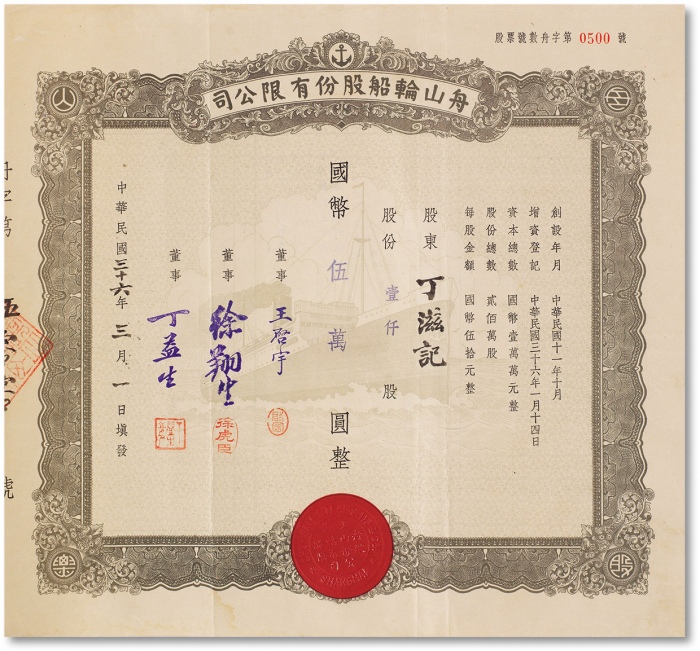 股票號數舟字第 0500 號
舟山輪船股份有限公司
創設年月 中華民國十一年十月
增資登記 中華民國三十六年一月十四日
資本總數 國幣壹萬萬元整
股份總數 貳佰萬股
每股金額 國幣伍拾元整
股東 丁滋記
股份 壹仟 股
國幣 伍萬 圓整
董事 王啓宇
董事 徐翔生
董事 丁益生
中華民國三十六年三月一日塡發